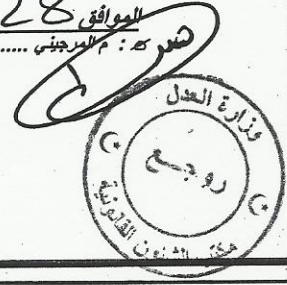 الموافق 28
م المرجيني .....
وزارة العدل
روجع
مكتب الشئون القانونية